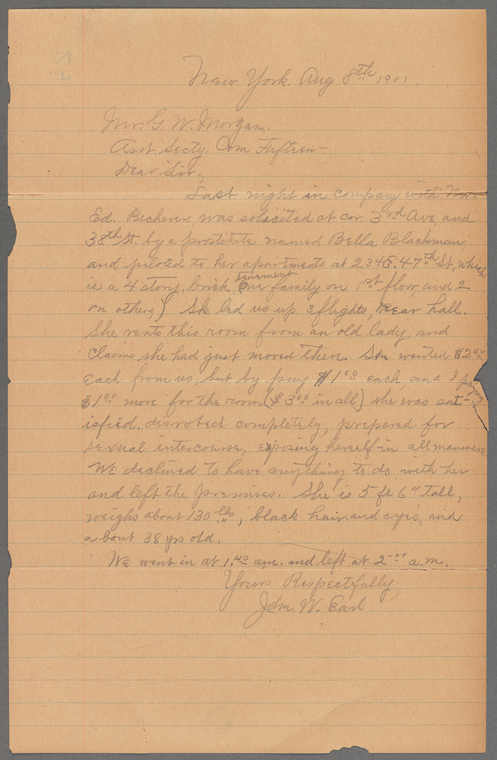 New York. Aug 8th 1901.
Mr. G. W. Morgan.
Asst. Secty. Com Fifteen-
Dear Sir,
Last night in company with Mr.
Ed. was solicited at cor. 3rd Ave, and
38th St. by a prostitute named Bella Blachman,
and piloted to her apartments at 234 E. 47th St, which
tenement
is a 4 story, brick (one family on 1st floor and 2
on others) She led us up 2 flights, rear hall.
She rents this room from an old lady, and
claims she had just moved there. She wanted $2.00
each from us, but by pay $1.00 each, and I paying
$1.00 more for the room ($3.00 in all) she was sat-
isfied, disrobed completely, prepared for
sexual intercourse, exposing herself in all manners.
We declined to have anything to do with her
and left the premises. She is 5 ft 6" tall,
weighs about 130 lbs, black hair and eyes, and
about 38 yrs old.
We went in at 1.40 a.m. and left at 2.00 a.m.
Yours Respectfully
John W. Earl